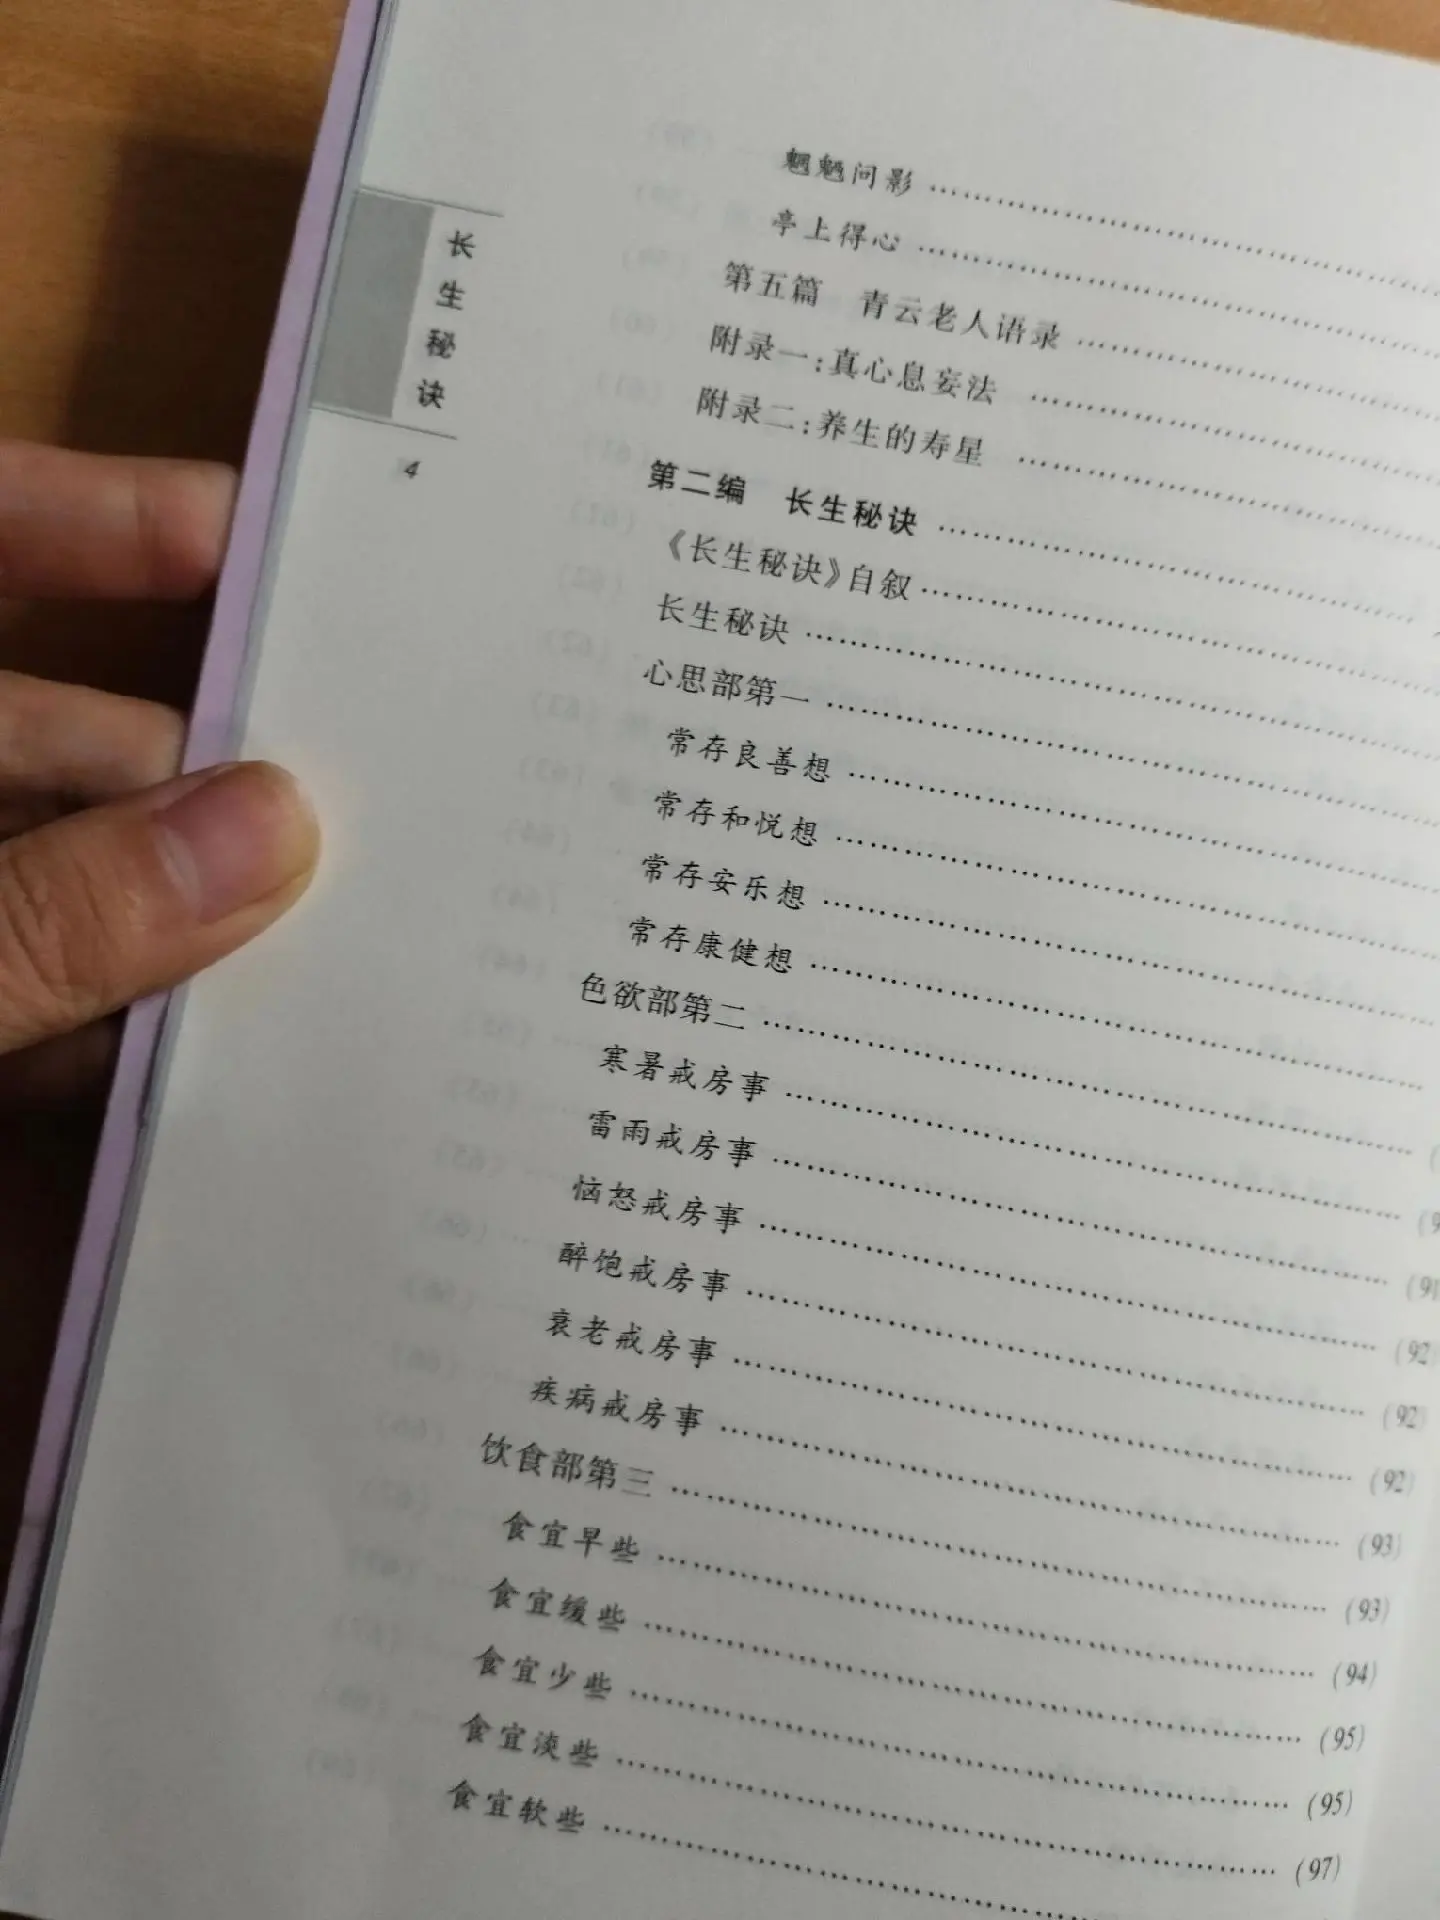 长生秘诀
4
魍魉问影
亭上得心
第五篇 青云老人语录
附录一:真心息妄法
附录二:养生的寿星
第二编 长生秘诀
《长生秘诀》自叙
长生秘诀
心思部第一
常存良善想
常存和悦想
常存安乐想
常存康健想
色欲部第二
寒暑戒房事
雷雨戒房事
恼怒戒房事 (91
醉饱戒房事 (92)
衰老戒房事 (92)
疾病戒房事 (92)
饮食部第三 (93)
食宜早些 (93)
食宜缓些 (94)
食宜少些 (95)
食宜淡些 (95)
食宜软些 (97)